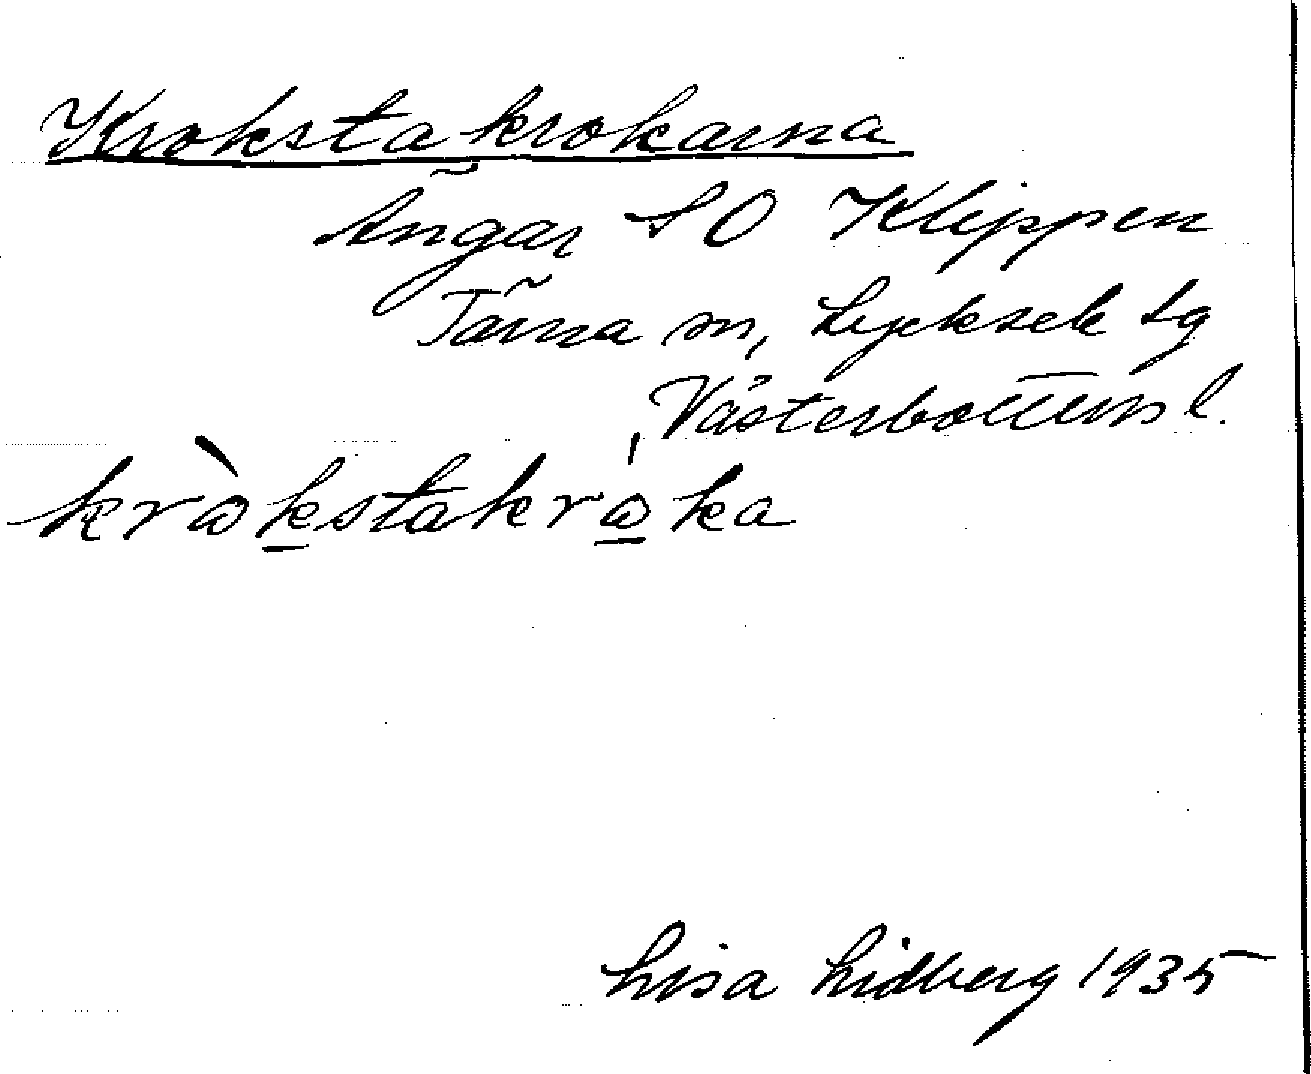 Krokstakrokarna
Ängar SO Klippen
Tärna sn, Lycksele tg
Västerbottens l.
kròkstakròka
Lisa Lidberg 1935